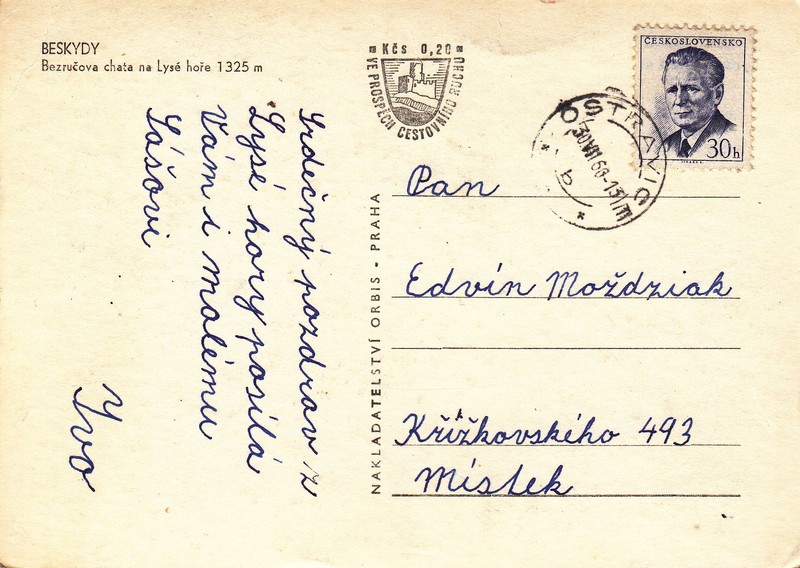 BESKYDY
Bezručova chata na Lysé hoře 1325 m
Kčs 0,20
VE PROSPĚCH CESTOVNÍHO RUCHU
ČESKOSLOVENSKO
30h
OSTRAVICE
b
Srdečný pozdrav z
Lysé hory posílá
Vám i malému
Sášovi
Ivo
NAKLADATELSTVÍ ORBIS - PRAHA
Pan
Edvín Moždziak
Křížkovského 493
Místek